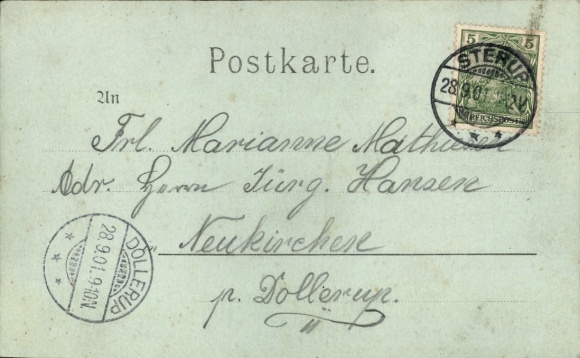 5 5
REICHSPOST
STERUP
28.9.01
Postkarte.
An
Frl. Marianne
Adr. Herrn Jürg. Hansen
Neukirchen
p. Dollerup.
DOLLERUP
28.9.01. 9-10N